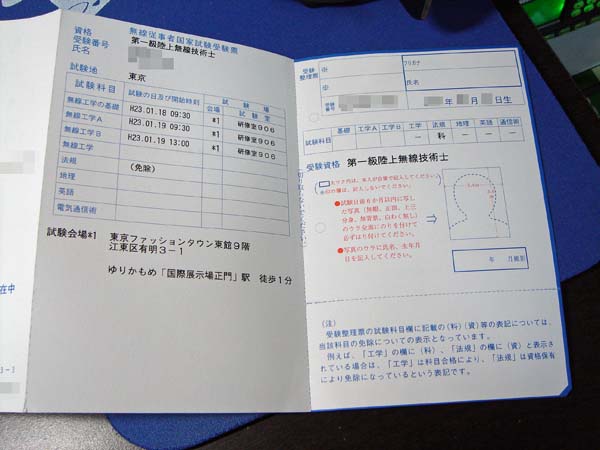 無線従事者国家試験受験票
資格 第一級陸上無線技術士
受験番号
氏名
試験地 東京
試験科目 試験の日及び開始時刻 試験場
会場 試験室
無線工学の基礎 H23.01.18 09:30 *1 研修室906
無線工学A H23.01.19 09:30 *1 研修室906
無線工学B H23.01.19 13:00 *1 研修室906
無線工学
法規 (免除)
地理
英語
電気通信術
試験会場*1 東京ファッションタウン東館9階
江東区有明3-1
ゆりかもめ「国際展示場正門」駅 徒歩1分
在中
受験整理票
フリガナ
氏名
受験番号
年 月 日生
試験科目 基礎 工学A 工学B 工学 法規 地理 英語 通信術
− 科 − − −
受験資格 第一級陸上無線技術士
●試験日前6か月以内に写し
た写真(無帽、正面、上三
分身、無背景、白わく無し)
のウラ全面にのりを付けて
必ずはり付けてください。
●写真のウラに氏名、生年月
日を記入してください。
⇒
年 月撮影
(注)
受験整理票の試験科目欄に記載の(科)(資)等の表記については、
当該科目の免除についての表示となっています。
例えば、「工学」の欄に(科)、「法規」の欄に(資)と表示さ
れている場合は、「工学」は科目合格により、「法規」は資格保有
により免除になっているという表記です。